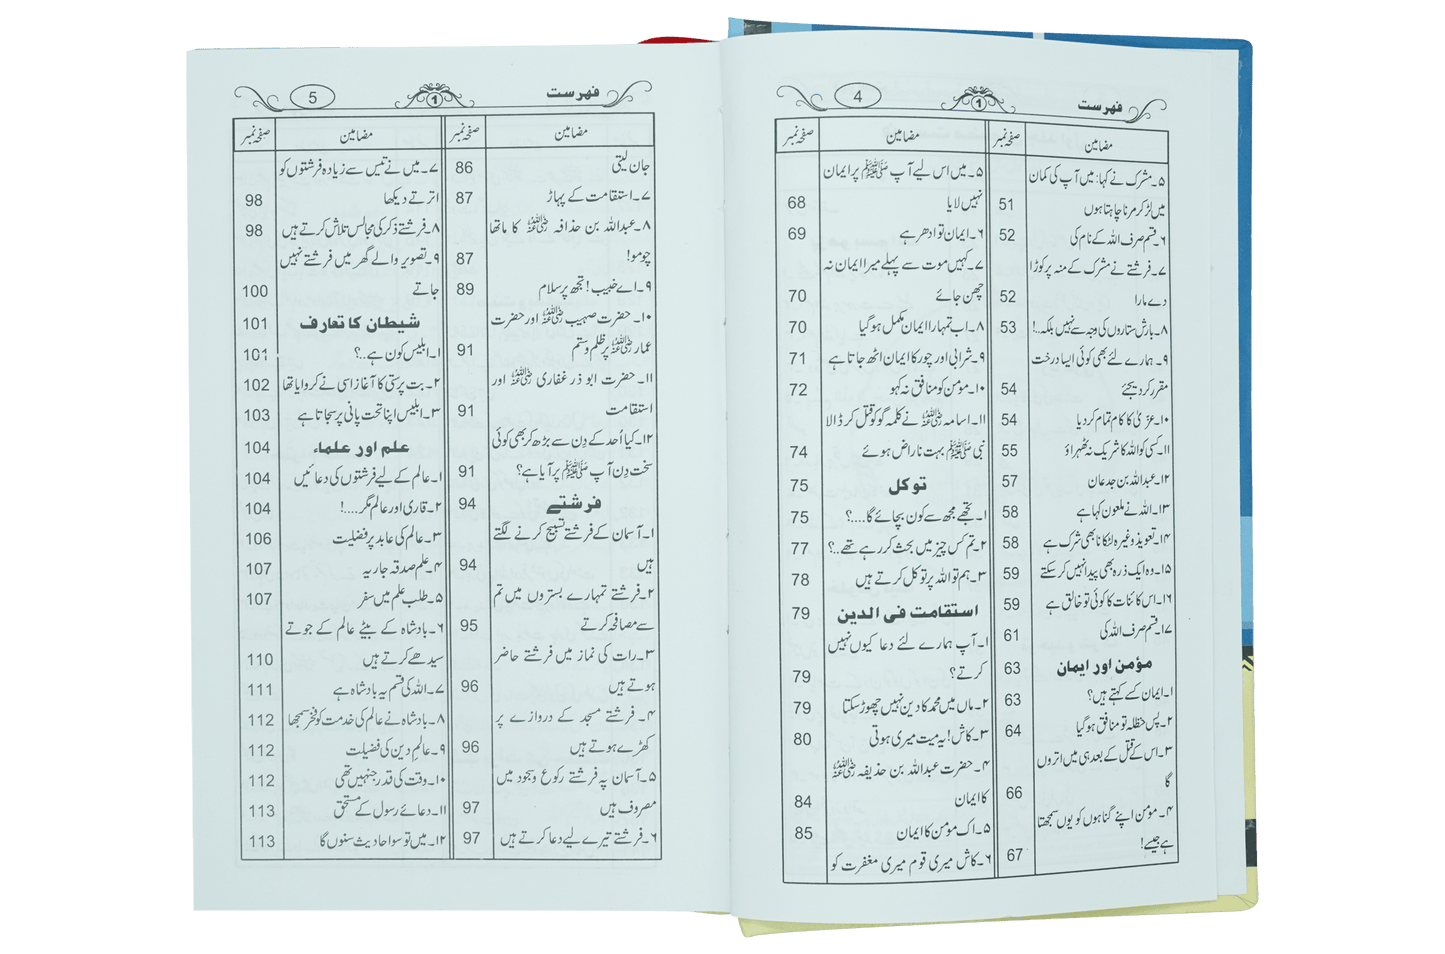 فہرست 1 4
مضامین صفحہ نمبر
۵۔مشرک نے کہا: میں آپ کی کمان
میں لڑ کر مرنا چاہتا ہوں 51
۶۔قسم صرف اللہ کے نام کی 52
۷۔فرشتے نے مشرک کے منہ پر کوڑا
دے مارا 52
۸۔بارش ستاروں کی وجہ سے نہیں بلکہ..! 53
۹۔ہمارے لئے بھی کوئی ایسا درخت
مقرر کر دیجئے 54
۱۰۔عزیٰ کا کام تمام کر دیا 54
۱۱۔کسی کو اللہ کا شریک نہ ٹھہراؤ 55
۱۲۔عبداللہ بن جدعان 57
۱۳۔اللہ نے ملعون کہا ہے 58
۱۴۔تعویذ وغیرہ لٹکانا بھی شرک ہے 58
۱۵۔وہ ایک ذرہ بھی پیدا نہیں کر سکتے 59
۱۶۔اس کائنات کا کوئی تو خالق ہے 59
۱۷۔قسم صرف اللہ کی 61
مؤمن اور ایمان 63
۱۔ایمان کسے کہتے ہیں؟ 63
۲۔پس حنظلہ تو منافق ہو گیا 64
۳۔اس کے قتل کے بعد ہی میں اتروں
گا 66
۴۔مؤمن اپنے گناہوں کو یوں سمجھتا
ہے جیسے! 67
مضامین صفحہ نمبر
۵۔میں اس لیے آپ ﷺ پر ایمان
نہیں لایا 68
۶۔ایمان تو ادھر ہے 69
۷۔کہیں موت سے پہلے میرا ایمان نہ
چھن جائے 70
۸۔اب تمہارا ایمان مکمل ہو گیا 70
۹۔شرابی اور چور کا ایمان اٹھ جاتا ہے 71
۱۰۔مؤمن کو منافق نہ کہو 72
۱۱۔اسامہ رضی اللہ عنہ نے کلمہ گو کو قتل کر ڈالا
نبی ﷺ بہت ناراض ہوئے 74
توکل 75
۱۔تجھے مجھ سے کون بچائے گا....؟ 75
۲۔تم کس چیز میں بحث کر رہے تھے..؟ 77
۳۔ہم تو اللہ پر توکل کرتے ہیں 78
استقامت فی الدین 79
۱۔آپ ہمارے لئے دعا کیوں نہیں
کرتے؟ 79
۲۔ماں میں محمد کا دین نہیں چھوڑ سکتا 79
۳۔کاش! یہ میت میری ہوتی 80
۴۔حضرت عبداللہ بن حذیفہ رضی اللہ عنہ
کا ایمان 84
۵۔اک مومن کا ایمان 85
۶۔کاش میری قوم میری مغفرت کو
فہرست 1 5
مضامین صفحہ نمبر
جان لیتی 86
۷۔استقامت کے پہاڑ 87
۸۔عبداللہ بن حذافہ رضی اللہ عنہ کا ماتھا
چومو! 87
۹۔اے خبیب! تجھ پر سلام 89
۱۰۔حضرت صہیب رضی اللہ عنہ اور حضرت
عمار رضی اللہ عنہ پر ظلم و ستم 91
۱۱۔حضرت ابو ذر غفاری رضی اللہ عنہ اور
استقامت 91
۱۲۔کیا اُحد کے دِن سے بڑھ کر بھی کوئی
سخت دِن آپ ﷺ پر آیا ہے؟ 91
فرشتے 94
۱۔آسمان کے فرشتے تسبیح کرنے لگتے
ہیں 94
۲۔فرشتے تمہارے بستروں میں تم
سے مصافحہ کرتے 95
۳۔رات کی نماز میں فرشتے حاضر
ہوتے ہیں 96
۴۔فرشتے مسجد کے دروازے پر
کھڑے ہوتے ہیں 96
۵۔آسمان پہ فرشتے رکوع و سجود میں
مصروف ہیں 97
۶۔فرشتے تیرے لیے دعا کرتے ہیں 97
مضامین صفحہ نمبر
۷۔میں نے تیس سے زیادہ فرشتوں کو
اترتے دیکھا 98
۸۔فرشتے ذکر کی مجالس تلاش کرتے ہیں 98
۹۔تصویر والے گھر میں فرشتے نہیں
جاتے 100
شیطان کا تعارف 101
۱۔ابلیس کون ہے..؟ 101
۲۔بت پرستی کا آغاز اسی نے کروایا تھا 102
۳۔ابلیس اپنا تخت پانی پر سجاتا ہے 103
علم اور علماء 104
۱۔عالم کے لیے فرشتوں کی دعائیں 104
۲۔قاری اور عالم مگر....! 104
۳۔عالم کی عابد پر فضیلت 106
۴۔علم صدقہ جاریہ 107
۵۔طلب علم میں سفر 107
۶۔بادشاہ کے بیٹے عالم کے جوتے
سیدھے کرتے ہیں 110
۷۔اللہ کی قسم یہ بادشاہ ہے 111
۸۔بادشاہ نے عالم کی خدمت کو فخر سمجھا 112
۹۔عالمِ دین کی فضیلت 112
۱۰۔وقت کی قدر جنہیں تھی 112
۱۱۔دعائے رسول کے مستحق 113
۱۲۔میں تو سو احادیث سنوں گا 113